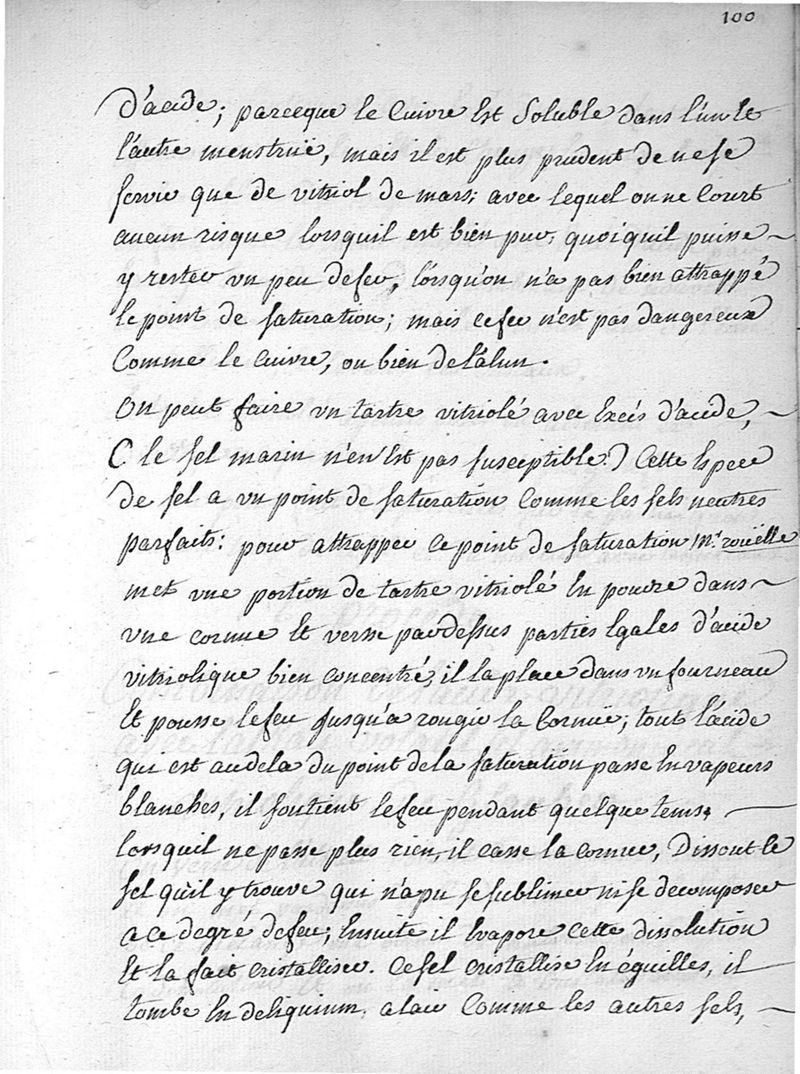 100
d'acide; parceque le Cuivre Est Soluble dans l'un Et
l'autre menstruë, mais il est plus prudent de ne se
servir que de vitriol de mars; avec lequel on ne Court
aucun risque lorsquil est bien pur, quoiquil puisse
y rester un peu de fer, lorsqu'on n'a pas bien attrappé
le point de saturation; mais ce fer n'est pas dangereux
Comme le Cuivre, ou bien de l'alun.
On peut faire un tartre vitriolé avec Excés d'acide,
( le sel marin n'en Est pas susceptible.) Cette Espece
de sel a un point de saturation Comme les sels neutres
parfaits: pour attrapper ce point de saturation Mr. roüelle
met une portion de tartre vitriolé En poudre dans
une cornue Et verse pardessus parties Egales d'acide
vitriolique bien concentré, il la place dans un fourneau
Et pousse le feu jusqu'a rougir la Cornue; tout l'acide
qui est audela du point de la saturation passe En vapeurs
blanches, il soutient le feu pendant quelque tems,
lorsquil ne passe plus rien, il casse la cornue, Dissout le
sel qu'il y trouve qui n'a pu se sublimer ni se decomposer
a ce degré de feu; Ensuite il Evapore cette dissolution
Et la fait cristalliser. Ce sel cristallise En éguilles, il
tombe En deliquium, a l'air Comme les autres sels,